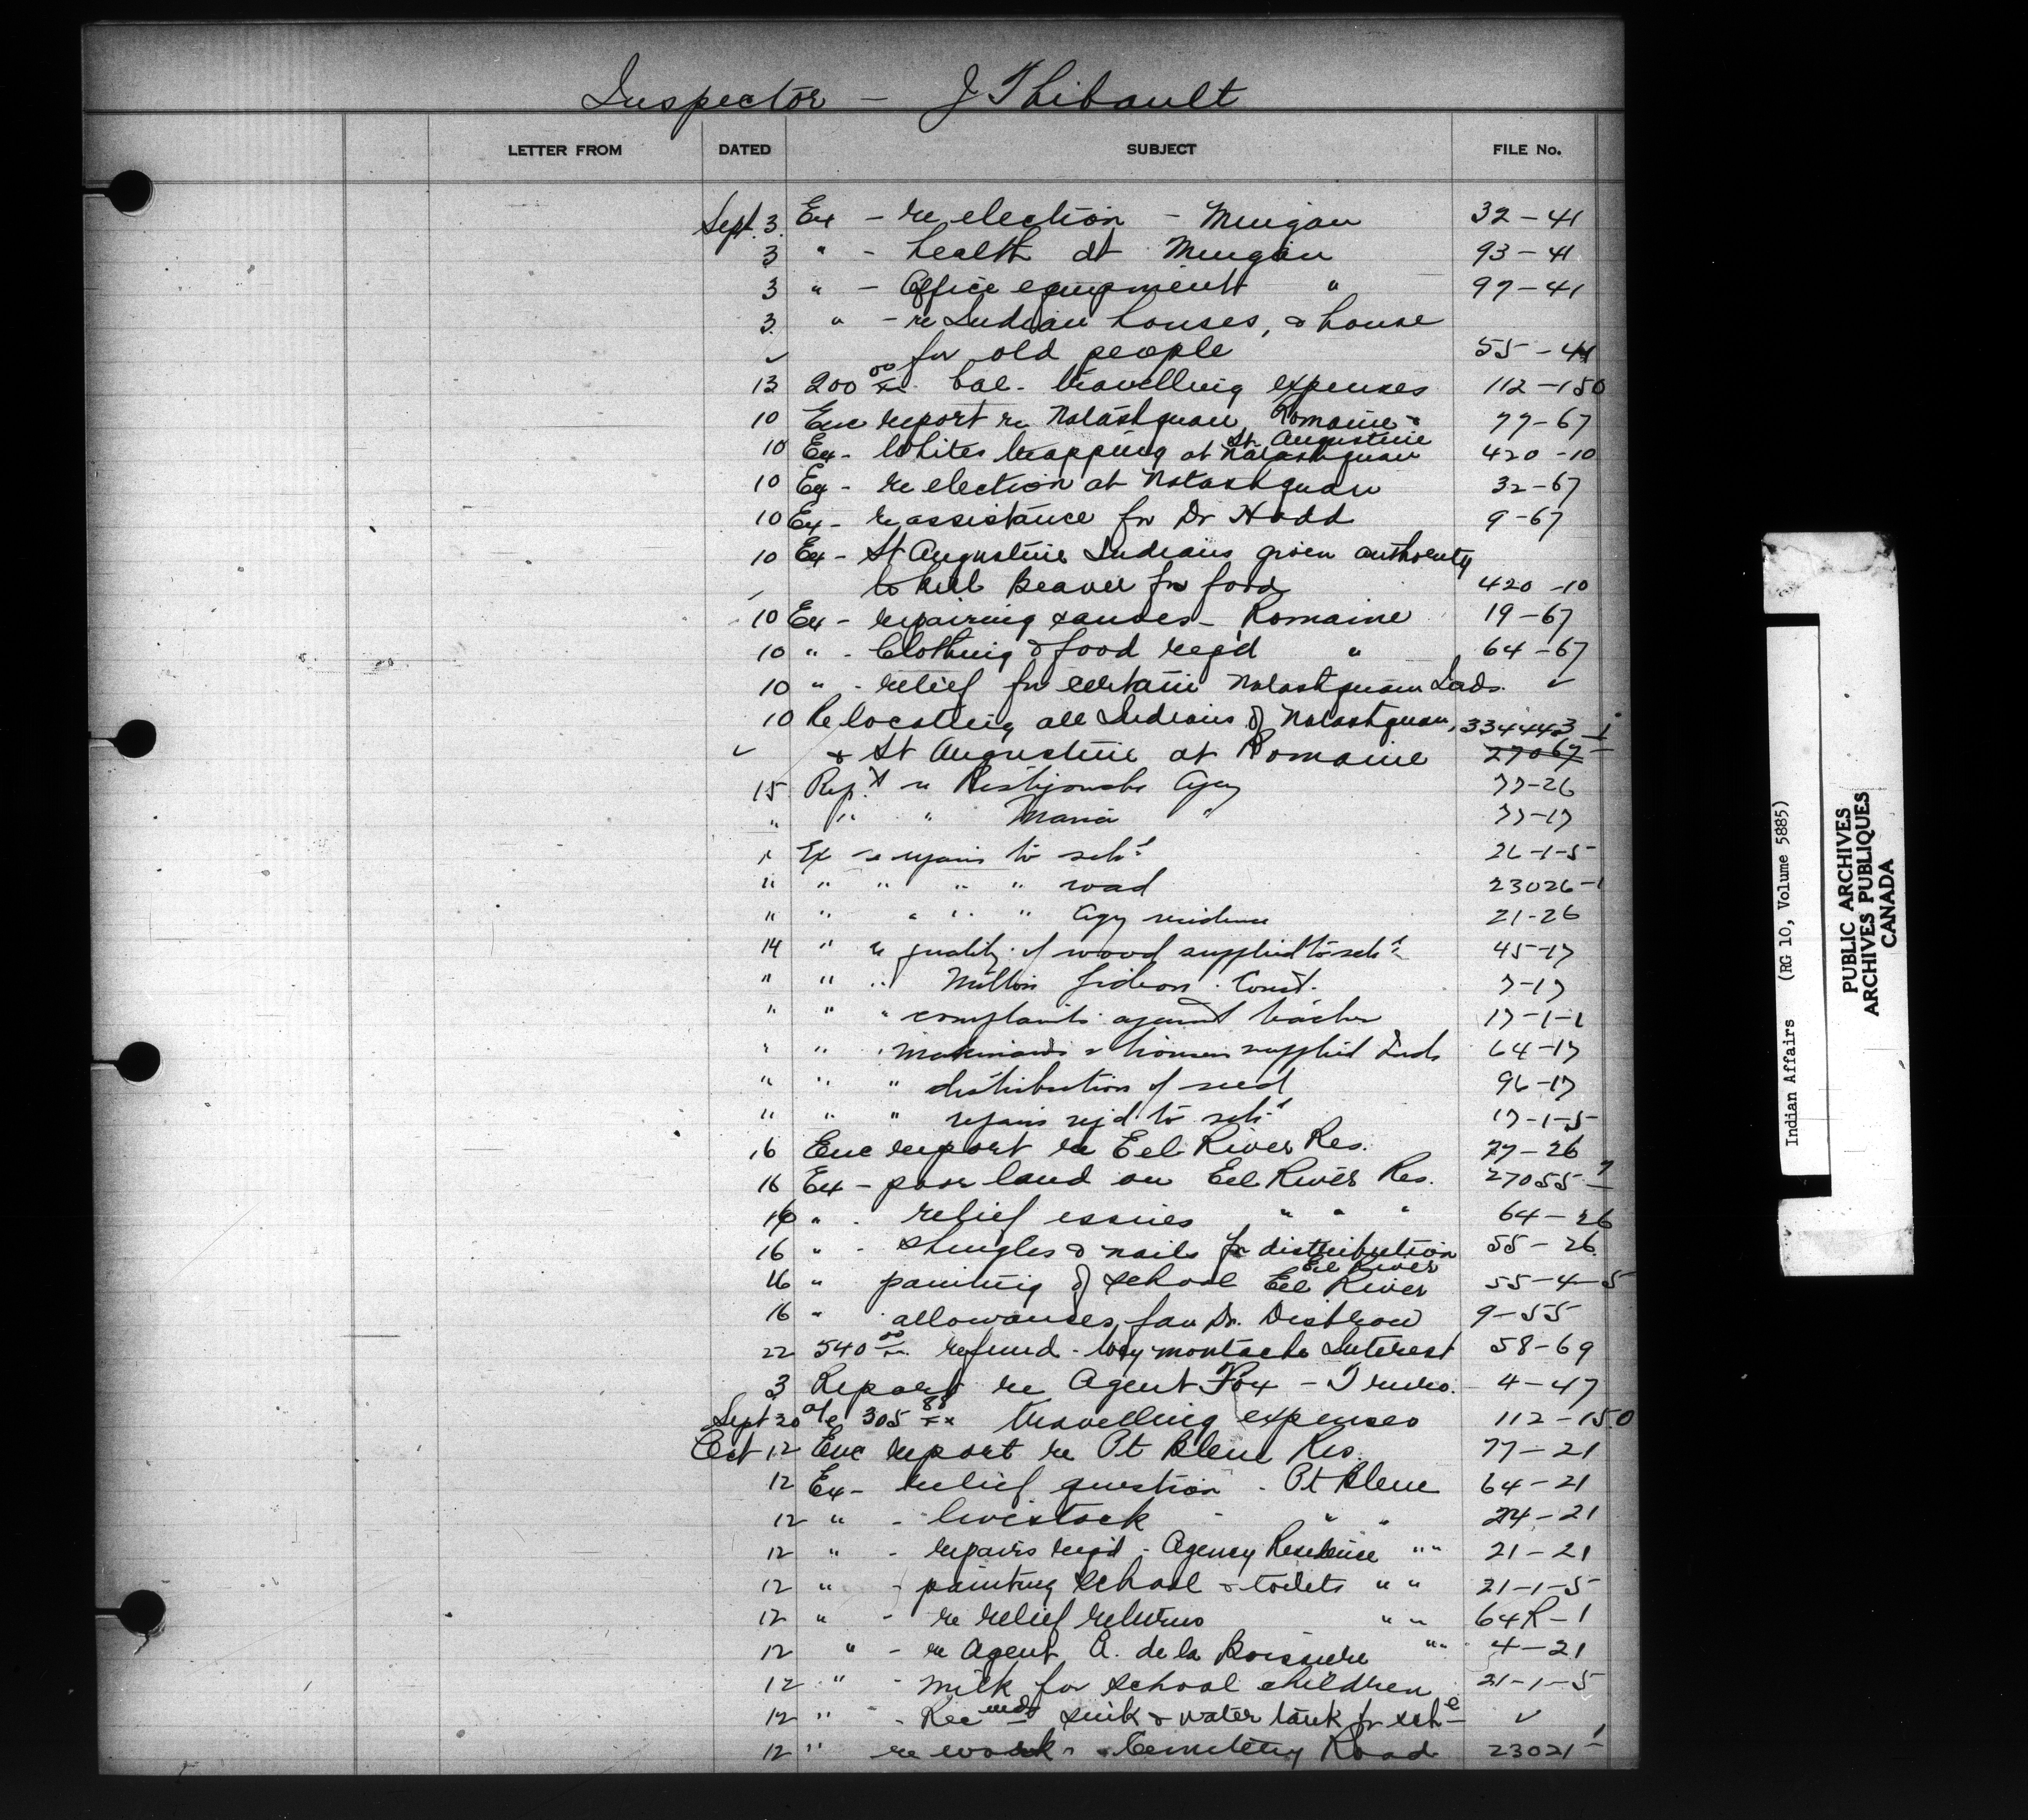 Inspector - J Thibault
LETTER FROM DATED SUBJECT FILE No.
Sept. 3. Ex - re election - Mingan 32-41
3 " - health at Mingan 93-41
3 " - Office equipment " 97-41
3. " - re Indian houses, & house
✓ for old people 55-41
13 200 00/xx bal. travelling expenses 112-150
10 Enc report re Natashquan, Romaine & 77-67
St Augustine
10 Ex - Whites trapping at Natashquan 420-10
10 Ex - re election at Natashquan 32-67
10 Ex - re assistance for Dr Hodd 9-67
10 Ex - St Augustine Indians given authority
to kill Beaver for food 420-10
10 Ex - repairing canoes - Romaine 19-67
10 " - Clothing & food req'd " 64-67
10 " - relief for certain Natashquan Inds. ✓
10 Re locating all Indians of Natashquan, 334443-1
✓ & St Augustine at Romaine 27067-
15 Rep't re Restigouche Agcy 77-26
" " " Maria " 77-17
" Ex re repairs to schl 26-1-5
" " " " " road 23026-1
" " " " " Agy residence 21-26
14 " re quality of wood supplied to schl 45-17
" " " Gideon. Const. 7-17
" " " complaints against teacher 17-1-1
" " " supplied Inds 64-17
" " " distribution of seed 96-17
" " " repairs req'd to schl 17-1-5
16 Enc report re Eel River Res. 77-26
16 Ex - poor land on Eel River Res. 27055-7
16 " - relief issues " " " 64-26
16 " - Shingles & nails for distribution 55-26
Eel River
16 " painting of school Eel River 55-4-5
16 " allowances for Dr. 9-55
22 540 00/xx refund - Interest 58-69
3 Report re Agent Fox - Truro. 4-47
Sept 30 a/c 305 88/xx travelling expenses 112-150
Oct 12 Enc report re Pt Bleue Res. 77-21
12 Ex - relief question - Pt Bleue 64-21
12 " - livestock " " 24-21
12 " - repairs req'd - Agency Residence " " 21-21
12 " - painting School & toilets " " 21-1-5
12 " - re relief returns " " 64R-1
12 " - re Agent A. de la Boissiere " " 4-21
12 " - milk for school children 21-1-5
12 " - Recmds sink & water tank for schl ✓
12 " re work - Cemetery Road 23021-1
Indian Affairs (RG 10, Volume 5885)
PUBLIC ARCHIVES
ARCHIVES PUBLIQUES
CANADA